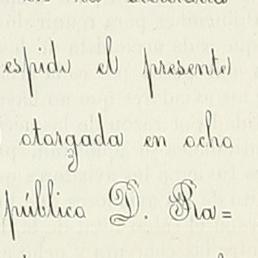 espide el presente
otorgada en ocho
pública D. Ra=